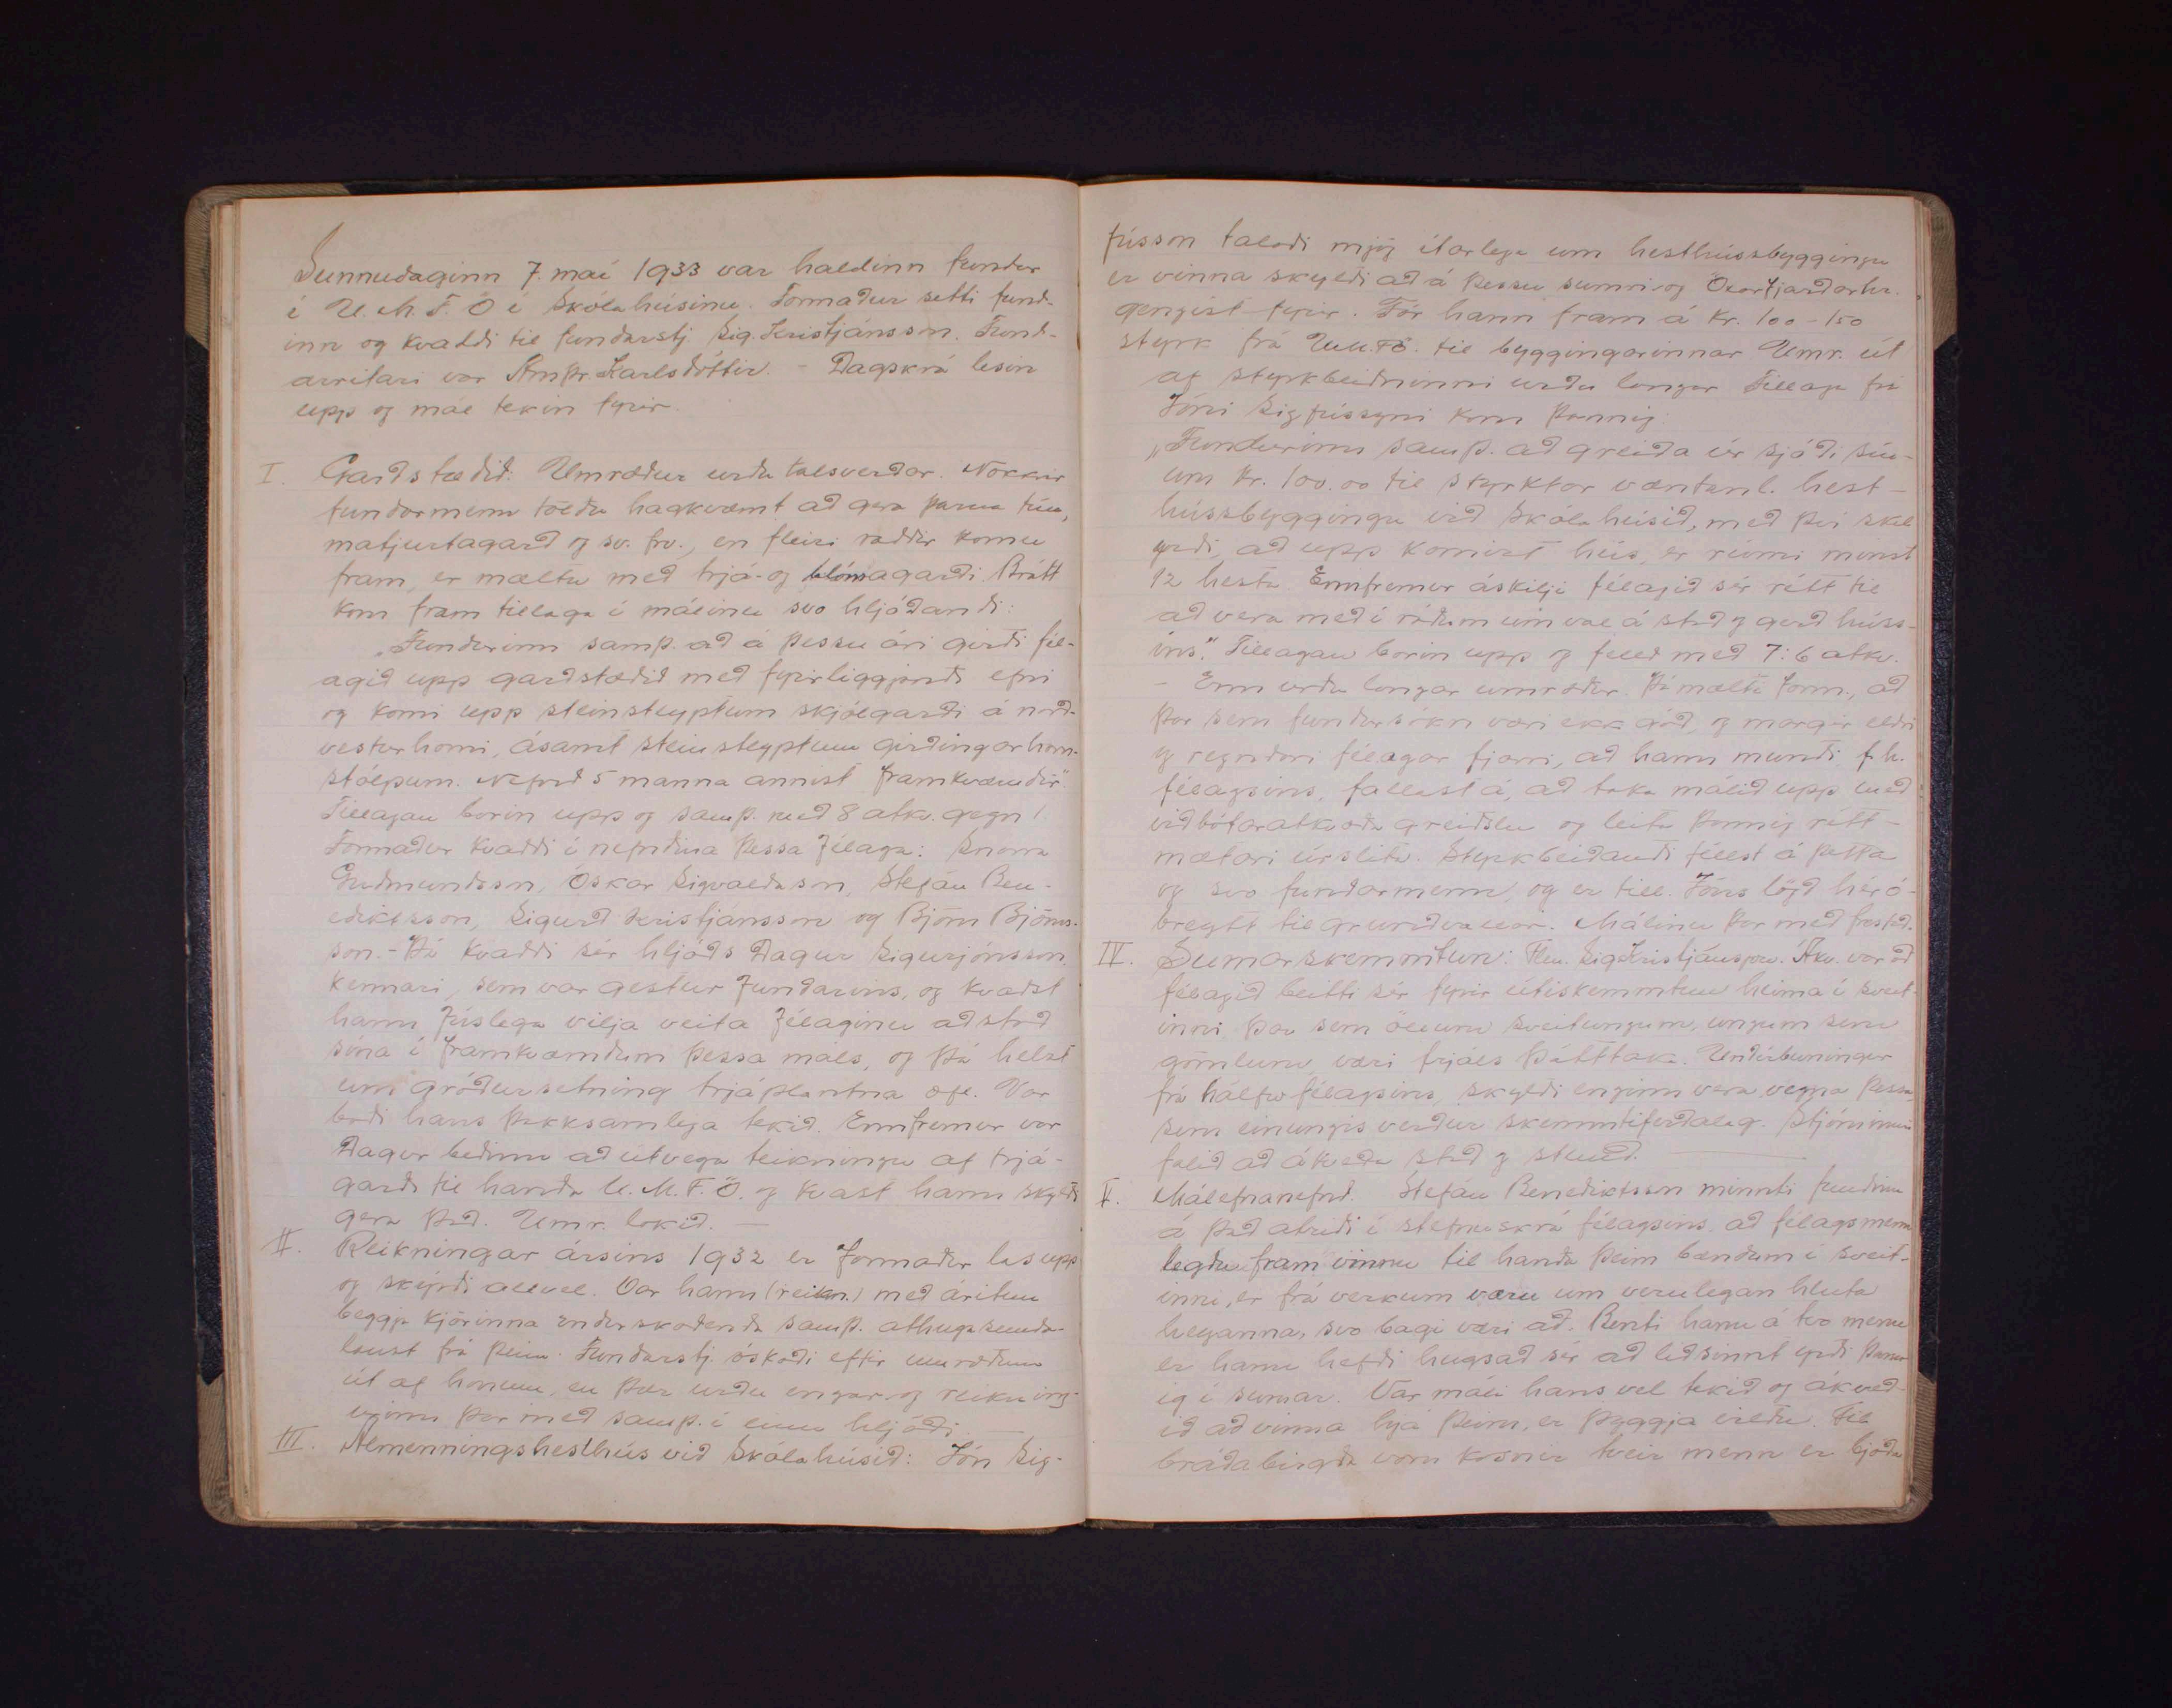 Sunnudaginn 7. maí 1933 var haldinn fundur
í U.M.F.Ö í Skólahúsinu. Formaður setti fund-
inn og kvaddi til fundarstj Sig. Kristjánsson. Fund-
arritari var Arnþr. Karlsdóttir. - Dagskrá lesin
upp og mál tekin fyrir.
I. Garðstæðið: Umræður urðu talsverðar. Nokkrir
fundarmenn töldu hagkvæmt að gera þarna tún,
matjurtagarð og sv. frv., en fleiri raddir komu
fram, er mæltu með trjá- og blómagarði. Brátt
kom fram tillaga í málinu svo hljóðandi:
„Fundurinn samþ. að á þessu ári girði fél-
agið upp garðstæðið með fyrirliggjandi efni
og komi upp steinsteyptum skjólgarði á norð-
vesturhorni, ásamt steinsteyptum girðingarhorn-
stólpum. Nefnd 5 manna annist framkvæmdir."
Tillagan borin upp og samþ. með 8 atkv. gegn 1.
Formaður kvaddi í nefndina þessa félaga: Snorra
Guðmundsson, Óskar Sigvaldason, Stefán Ben-
ediktsson, Sigurð Kristjánsson og Björn Björns-
son. - Þá kvaddi sér hljóðs Dagur Sigurjónsson
kennari, sem var gestur fundarins, og kvaðst
hann fúslega vilja veita félaginu aðstoð
sína í framkvæmdum þessa máls, og þá helst
um gróðursetning trjáplantna ofl. Var
boði hans þakksamlega tekið. Ennfremur var
Dagur beðinn að útvega teikningu af trjá-
garði til handa U.M.F.Ö. og kvast hann skyldi
gera það. Umr. lokið. —
II. Reikningar ársins 1932 er formaður las upp
og skýrði allvel. Var hann (reikn.) með áritun
beggja kjörinna endurskoðenda samþ. athugasemda-
laust frá þeim. Fundarstj. óskaði eftir umræðum
út af honum, en þær urðu engar og reikning-
urinn þar með samþ. í einu hljóði. —
III. Almenningshesthús við Skólahúsið: Jón Sig-
fússon talaði mjög ítarlega um hesthússbyggingu
er vinna skyldi að á þessu sumri og Öxarfjarðarhr.
gengist fyrir. Fór hann fram á kr. 100 - 150
styrk frá U.M.F.Ö. til byggingarinnar Umr. út
af styrkbeiðninni urðu langar Tillaga frá
Jóni Sigfússyni kom þannig:
„Fundurinn samþ. að greiða úr sjóði sín-
um kr. 100.00 til styrktar væntanl. hest-
hússbyggingu við Skólahúsið, með því skil
yrði, að upp komist hús, er rúmi minst
12 hesta. Ennfremur áskilji félagið sér rétt til
að vera með í ráðum um val á stað og gerð húss-
ins." Tillagan borin upp og felld með 7:6 atkv.
- Enn urðu langar umræður. Þá mælti form., að
þar sem fundarsókn væri ekk góð, og margir eldri
og reyndari félagar fjarri, að hann mundi f. h.
félagsins, fallast á, að taka málið upp með
viðbótaratkvæðagreiðslu og leita þannig rétt-
mætari úrslita. Styrkbeiðandi féllst á þetta
og svo fundarmenn, og er till. Jóns lögð hér ó-
breytt til grundvallar. Málinu þar með frestað.
IV. Sumarskemmtun: Flm. Sig. Kristjánsson. Ákv. var að
félagið beitti sér fyrir útiskemmtun heima í sveit-
inni þar sem öllum sveitungum, ungum sem
gömlum væri frjáls þátttaka. Undirbúningur
frá hálfu félagsins, skyldi enginn vera vegna þessa
sem einungis verður skemmtiferðalag. Stjórninni
falið að ákveða stað og stund. —
V. Málefnanefnd. Stefán Benediktsson minnti fundinn
á það atriði í stefnuskrá félagsins, að félagsmenn
legðu fram vinnu til handa þeim bændum í sveit-
inni, er frá verkum væru um verulegan hluta
heyanna, svo bagi væri að. Benti hann á tvo menn
er hann hefði hugsað sér að liðsinnt yrði þann-
ig í sumar. Var máli hans vel tekið og ákveð-
ið að vinna hjá þeim, er þyggja vildu. Til
bráðabirgða voru kosnir tveir menn er bjóða